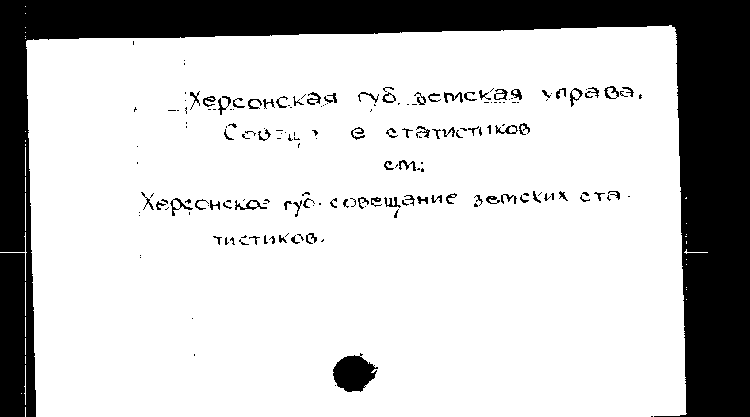 Херсонская губ. земская управа.
Совещание статистиков
см.:
Херсонское губ. совещание земских ста-
тистиков.